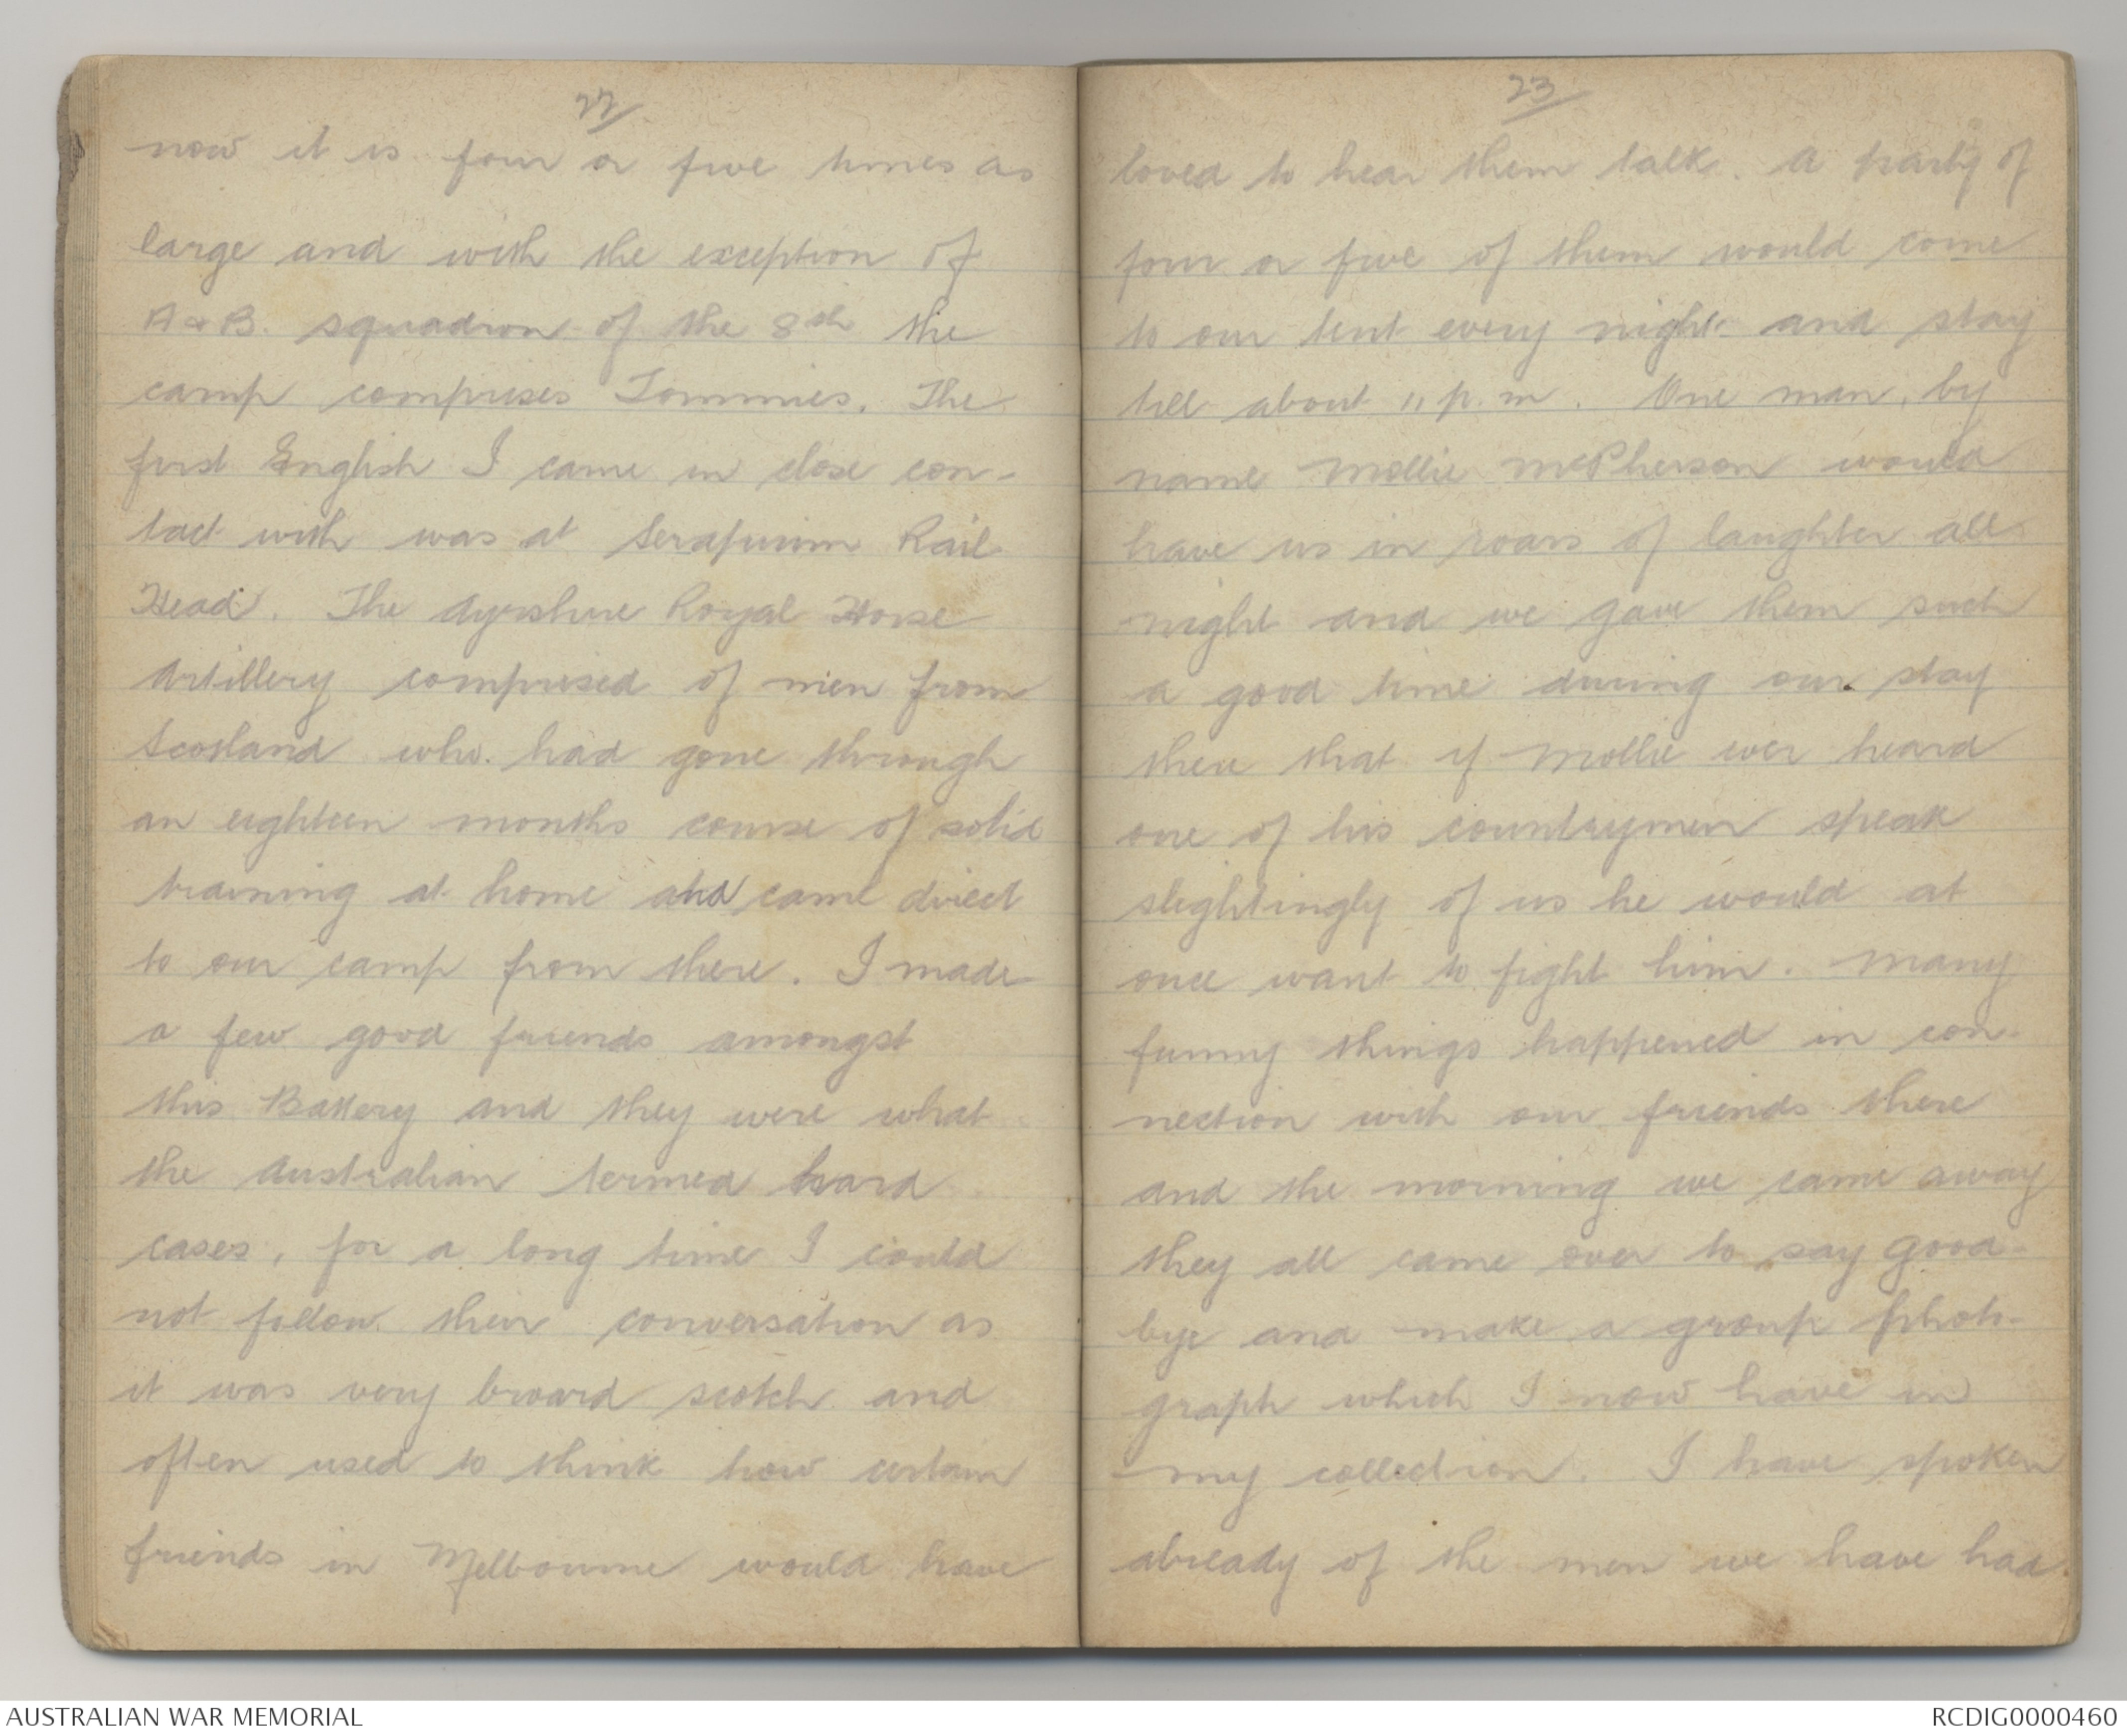 22
now it is four or five times as
large and with the exception of
A & B. squadron of the 8th the
camp comprises Tommies. The
first English I came in close con-
tact with was at Serapuim Rail
Head. The Ayrshire Royal Horse
Artillery comprised of men from
Scotland who had gone through
an eighteen months course of solid
training at home and came direct
to our camp from there. I made
a few good friends amongst
this Battery and they were what
the Australian termed hard
cases, for a long time I could
not follow their conversation as
it was very broard scotch and
often used to think how certain
friends in Melbourne would have
23
loved to hear them talk. A party of
four or five of them would come
to our tent every night and stay
till about 11 p.m. One man, by
name Mollie McPherson would
have us in roars of laughter all
night and we gave them such
a good time during our stay
there that if Mollie ever heard
one of his countrymen speak
slightingly of us he would at
once want to fight him. Many
funny things happened in con-
nection with our friends there
and the morning we came away
they all came over to say good-
bye and make a group photo-
graph which I now have in
my collection. I have spoken
already of the men we have had.
AUSTRALIAN WAR MEMORIAL
RCDIG0000460